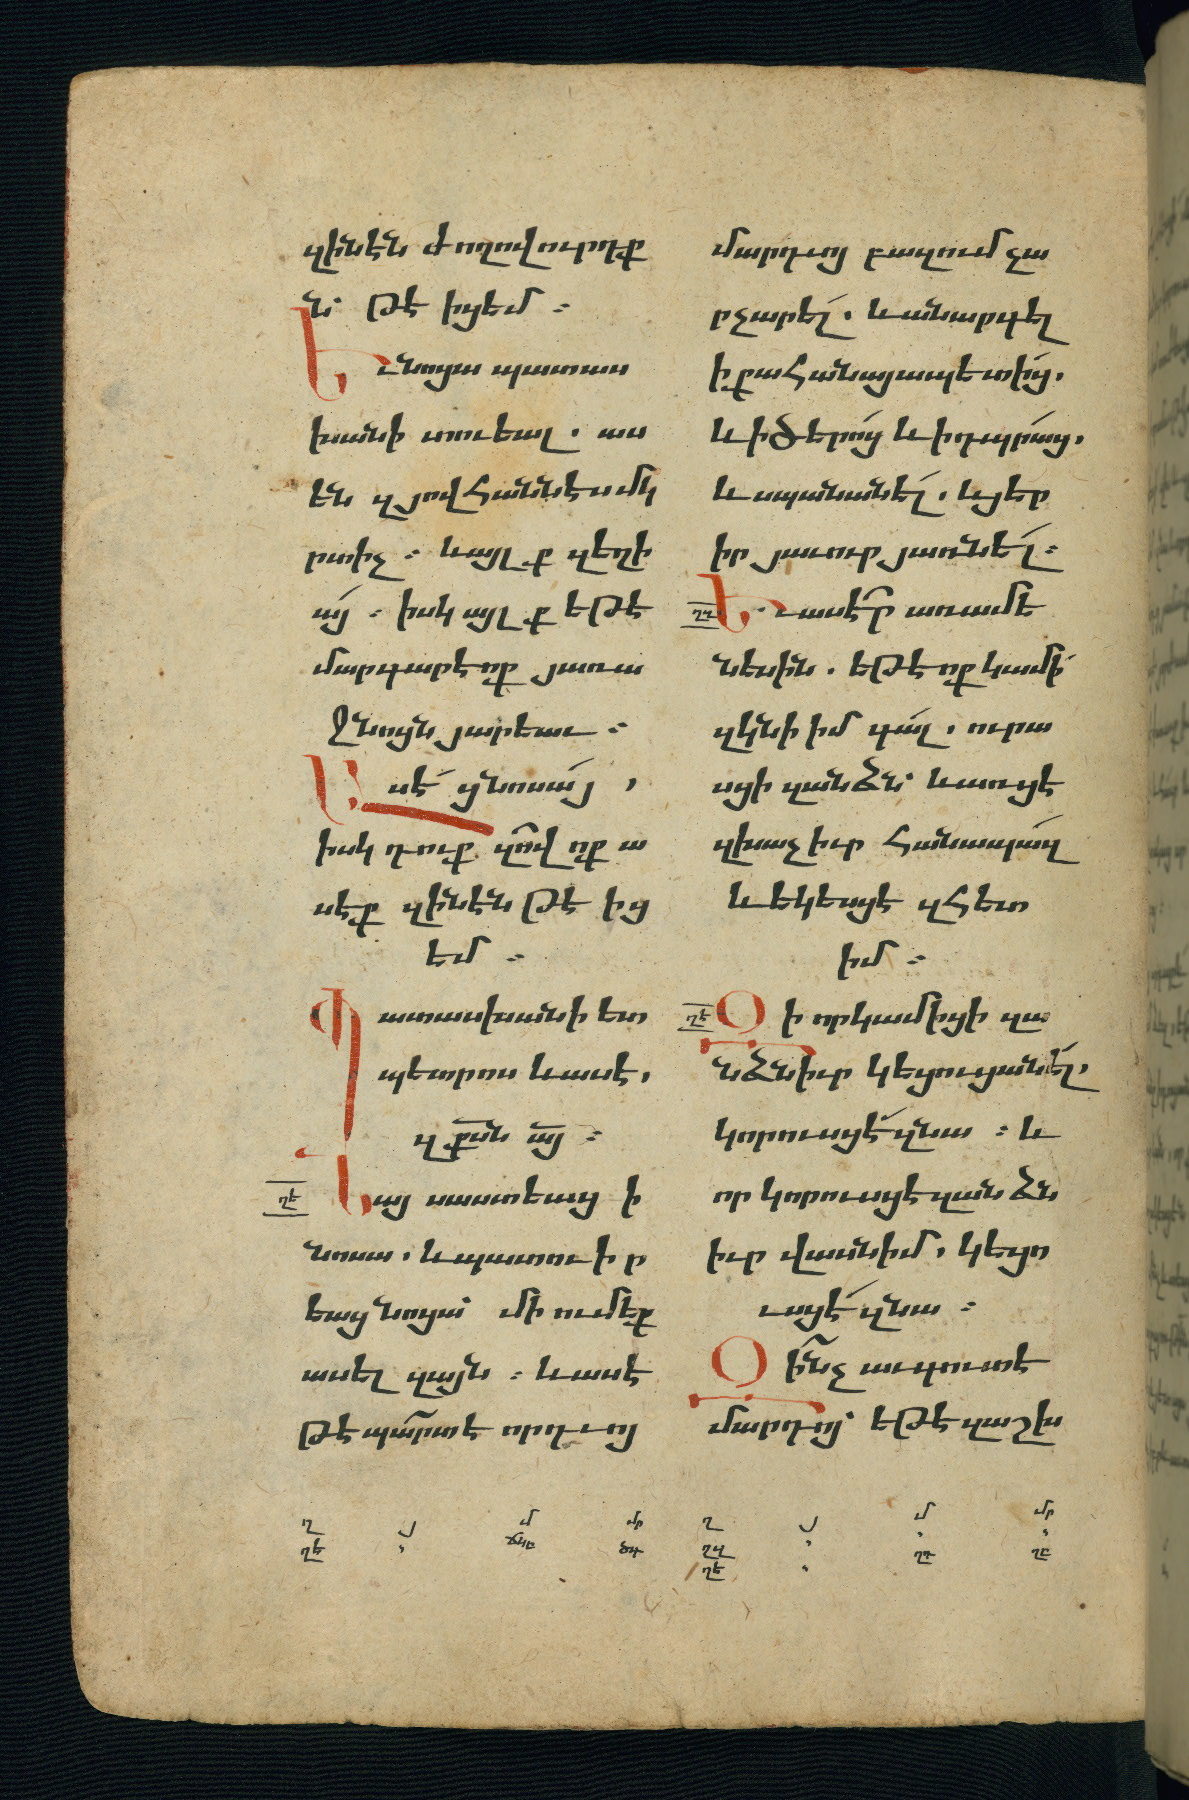 զինէն ժողովուրդք
ն՝ թէ իցեմ ։
Եւնոքա պատաս
խանի տուեալ . աս
են զյովհաննէս մկ
րտիչ ։ և այլք զեղի
այ ։ իսկ այլք եթէ
մարգարէ ոք յառա
ջնոցն յարեաւ ։
Ասէ՛ ցնոսա ,
իսկ դուք զո՞վ ոք ա
սէք զինէն թէ ից
եմ ։
Պատասխանի ետ
պետրոս և ասէ ,
զք̅սն ա̅յ ։
ղե
Նայ սաստեաց ի
նոսա . և պատուիր
եաց նոցա՝ մի ումեք
ասել զայն ։ և ասէ
թէ պարտ է որդւոյ
մարդոյ բազում չա
րչարել . և անարգել
ի քահանայապետից .
և ի ծերոց և ի դպրաց .
և սպանանել . և յեր
իր յաւուր յառնել ։
ղզ
Եւ ասէր առ ամե
նեսին . եթէ ոք կամի
զկնի իմ գալ . ուրա
սցի զանձն՝ և առցէ
զխաչ իւր հանապազ
և եկեսցէ զհետ
իմ ։
ղէ
Զի որ կամիցի զա
նձն իւր կեցուցանել .
կորուսցէ զնա ։ և
որ կորուսցէ զանձն
իւր վասն իմ . կեցո
ւսցէ զնա ։
Զինչ աւգուտ է
մարդոյ՝ եթէ զաշխ
ղ յ մ մր ղ յ մ մր